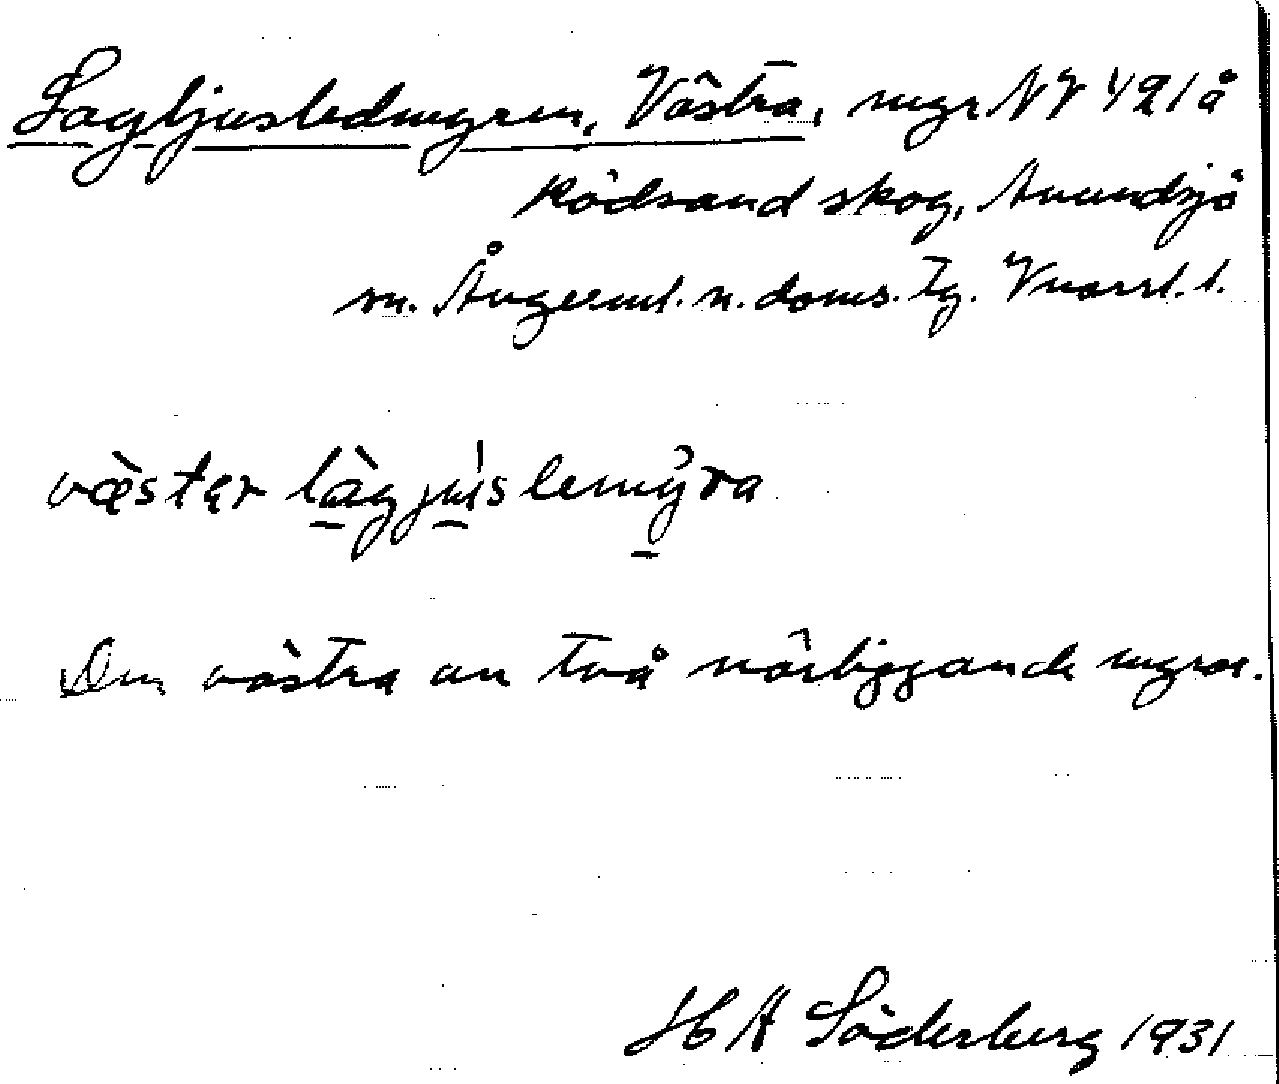 Lagljusledmyren, Västra, myr NV 421 å
Rödsand skog, Anundsjö
sn. Ångerml. n. doms. tg. Vnorrl. l.
väster làgjúslemyra
Den västra av två närliggande myrar.
H A Söderberg 1931